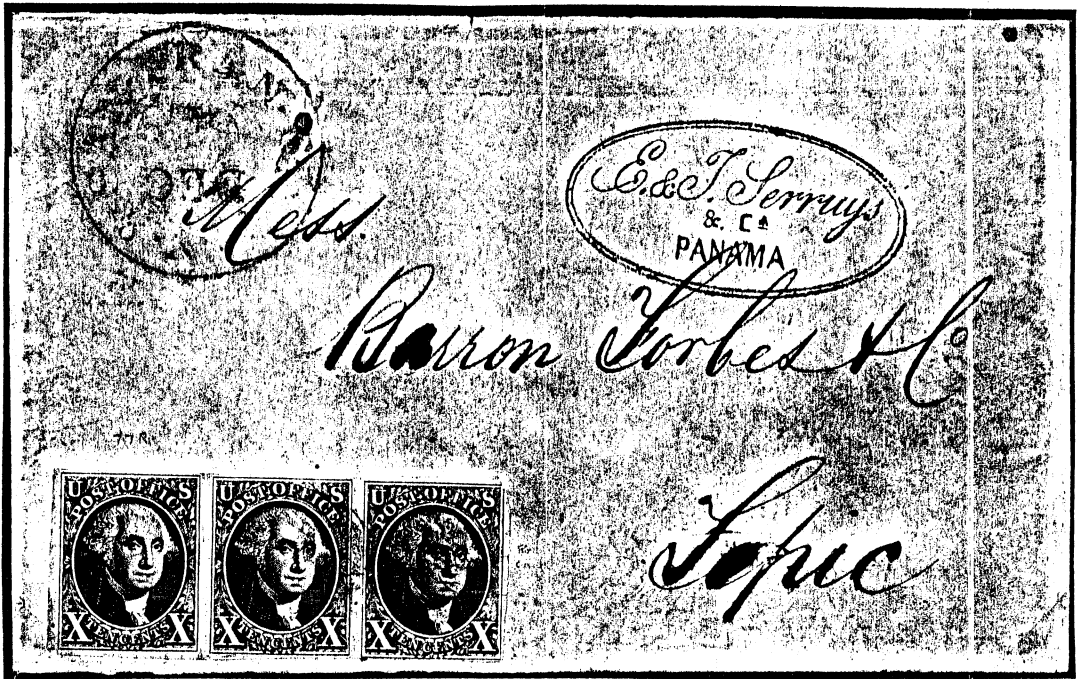 E. & T. Serruys
& Cª
PANAMA
Mess.
Barron Forbes & Co
Tepic
U S
POST OFFICE
X TEN CENTS X
U S
POST OFFICE
X TEN CENTS X
U S
POST OFFICE
X TEN CENTS X